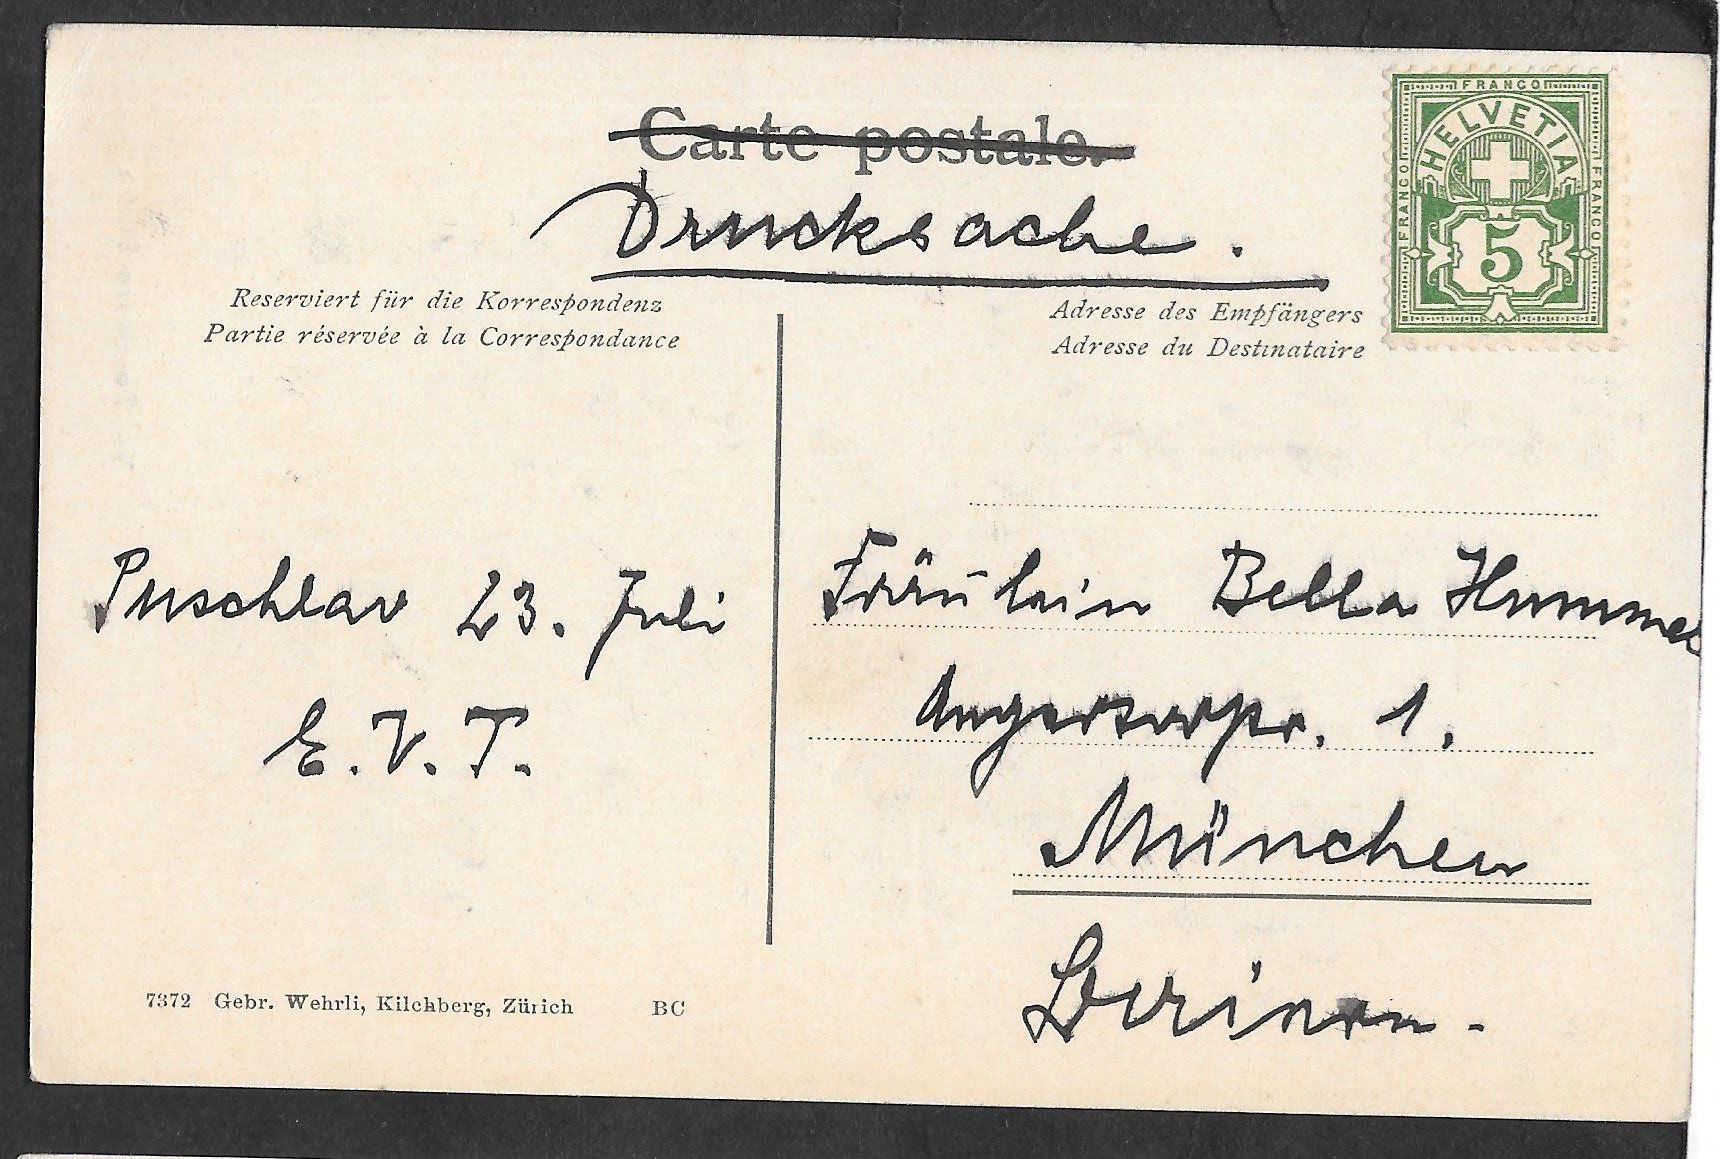 Carte postale.
Drucksache.
FRANCO
HELVETIA
FRANCO
FRANCO
5
Reserviert für die Korrespondenz
Partie réservée à la Correspondance
Adresse des Empfängers
Adresse du Destinataire
Puschlav 23. Juli
E. V. T.
Fräulein Bella Hummel
1.
München
7372 Gebr. Wehrli, Kilchberg, Zürich BC